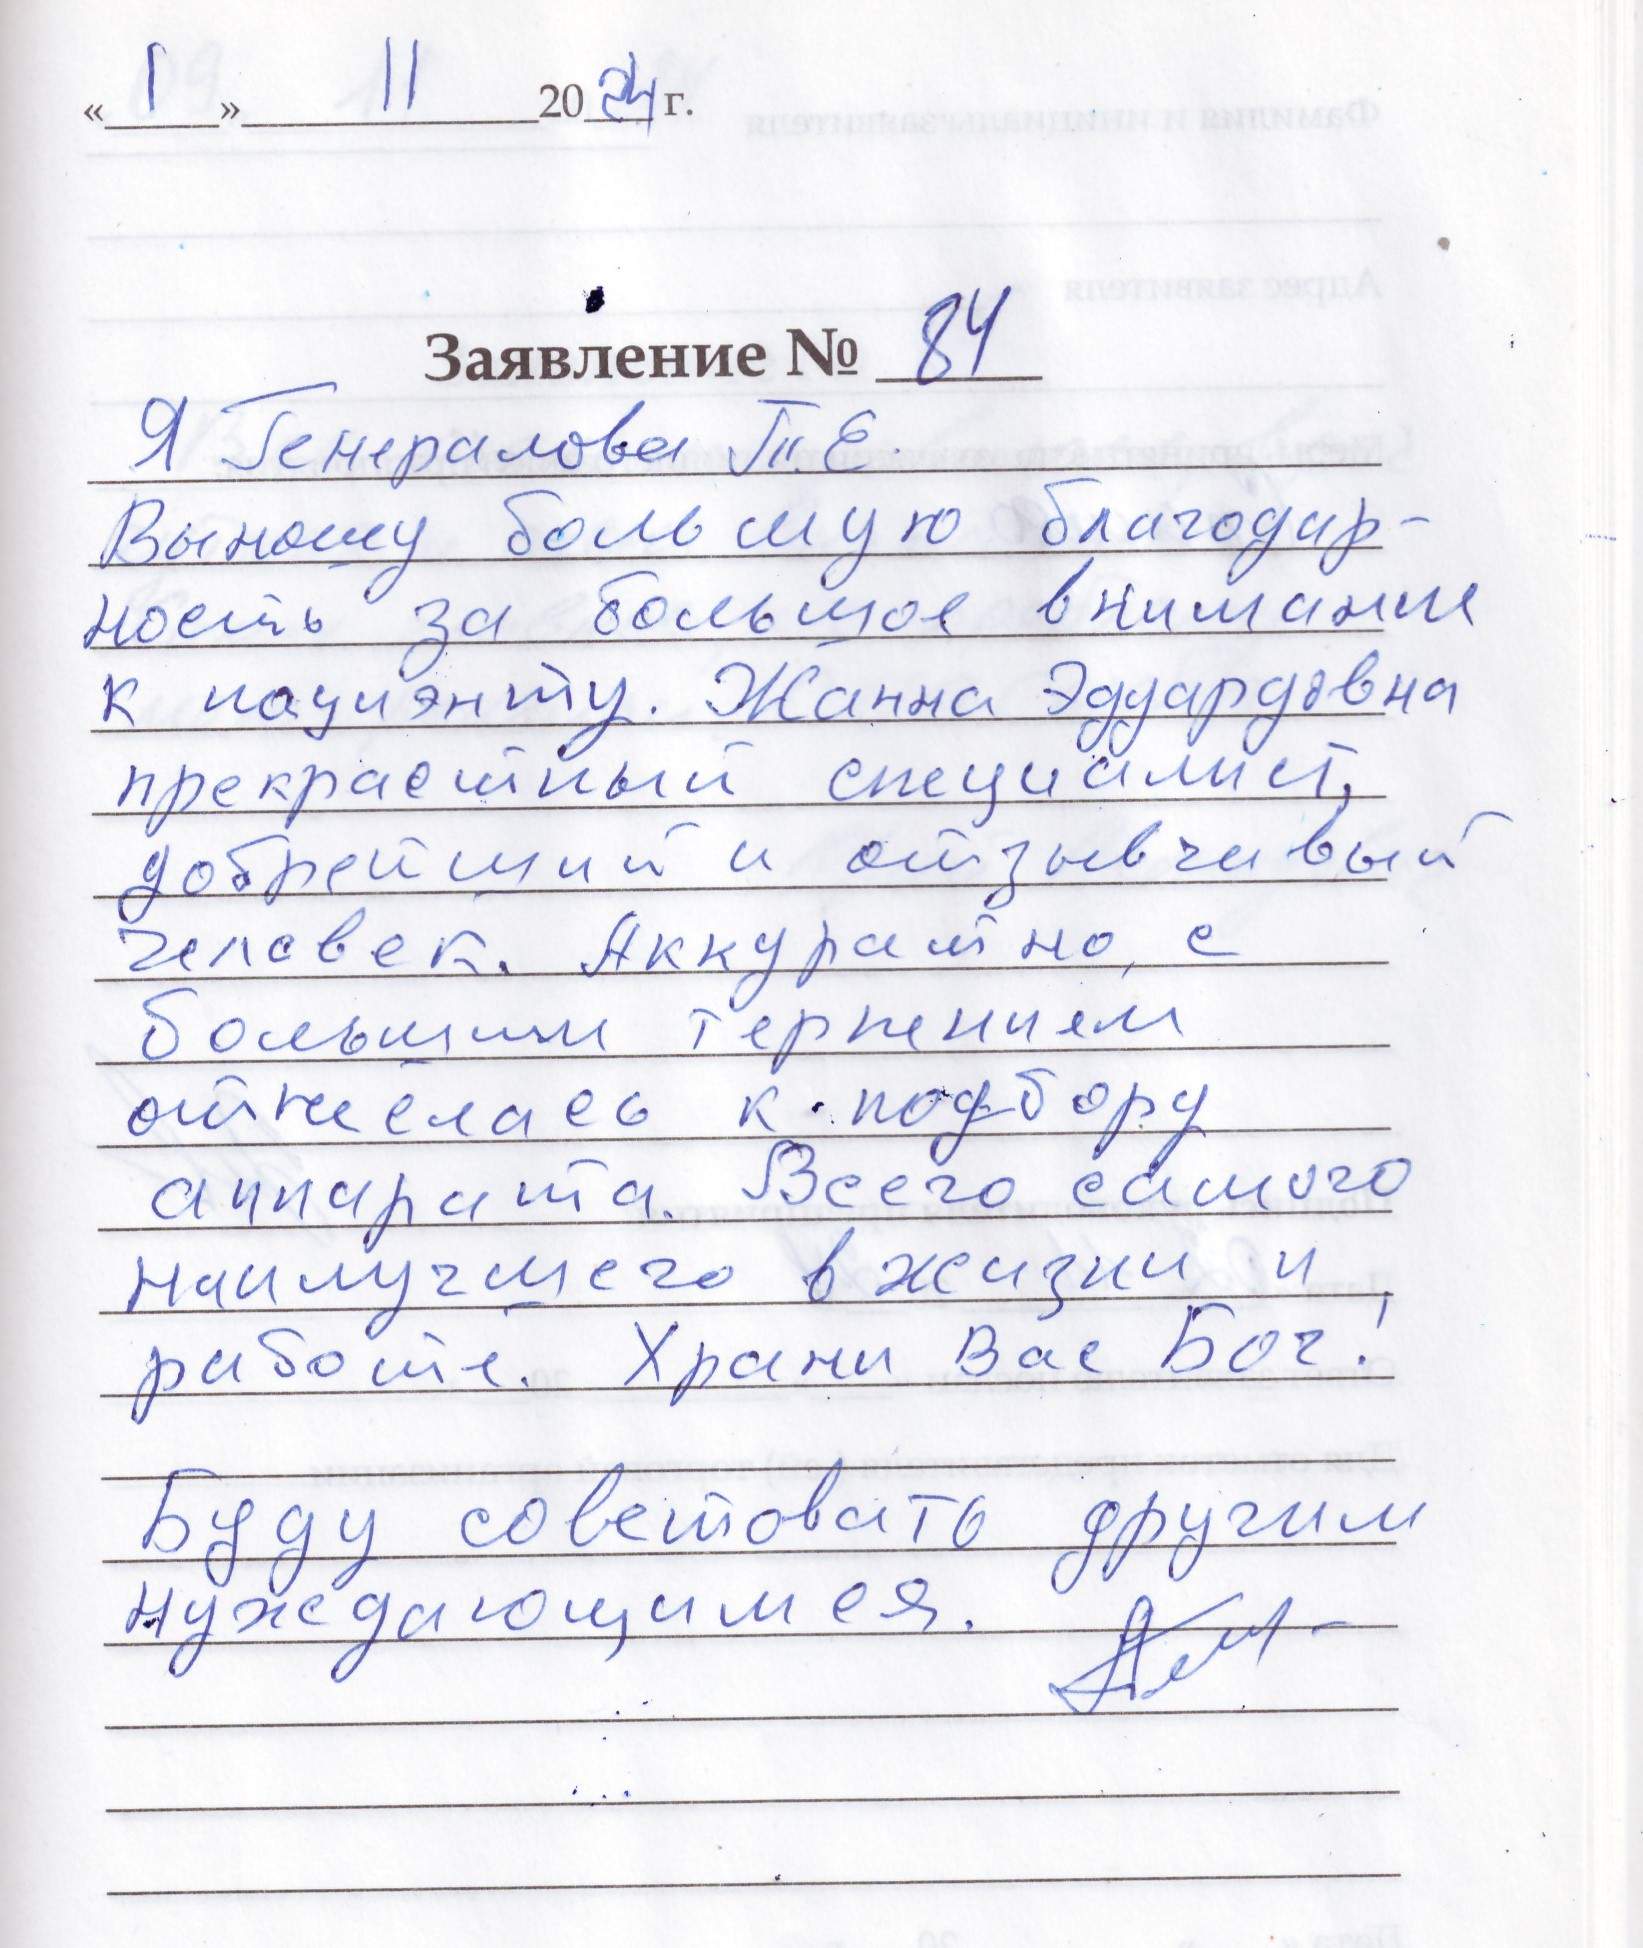 « 1 » 11 2024 г.
Заявление № 84
Я Генералова Т.Е.
Выношу большую благодар-
ность за большое внимание
к пациэнту. Жанна Эдуардовна
прекрастный специалист,
добрейший и отзывчивый
человек. Аккуратно, с
большим терпением
отнеслась к подбору
аппарата. Всего самого
наилучшего в жизни и
работе. Храни Вас Бог!
Буду советовать другим
нуждающимся.